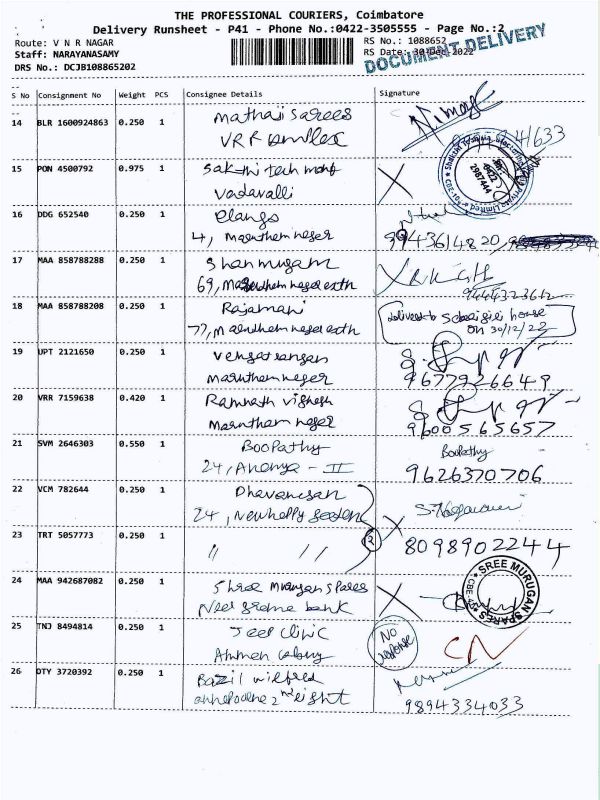 THE PROFESSIONAL COURIERS, Coimbatore
Delivery Runsheet - P41 - Phone No.:0422-3505555 - Page No.:2
Route: V N R NAGAR
RS No.: 1088652
Staff: NARAYANASAMY
RS Date: 30-Dec-2022
DRS No.: DCJB108865202
DOCUMENT DELIVERY
S No Consignment No Weight PCS Consignee Details Signature
14 BLR 1600924863 0.250 1 Mathaji Sarees
VRR
15 PON 4500792 0.975 1 Sakthi tech
Vadavalli
16 DDG 652540 0.250 1 Elango
4, Maruthem neger
9943614820
17 MAA 858788288 0.250 1 Shanmugam
69, Maruthem neger exth
9444323612
18 MAA 858788208 0.250 1 Rajamani
77, Maruthem neger exth
Delivered to house
on 30/12/22
19 UPT 2121650 0.250 1 Vengatrangan
Maruthem neger
9677926649
20 VRR 7159638 0.420 1 Ramnath Vighesh
Maruthem neger
9600565657
21 SVM 2646303 0.550 1 Boopathy Boopathy
24, Ananya - II
9626370706
22 VCM 782644 0.250 1 Dhavanesan
24, Newhappy
23 TRT 5057773 0.250 1 " " 2
8098902244
24 MAA 942687082 0.250 1 Shree Murugan Spares
Neer bank
SREE MURUGAN SPARES
25 TNJ 8494814 0.250 1 Jeep Clinic
No response
CN
Ahmen colony
26 DTY 3720392 0.250 1 Bazil wilfred
9894334033